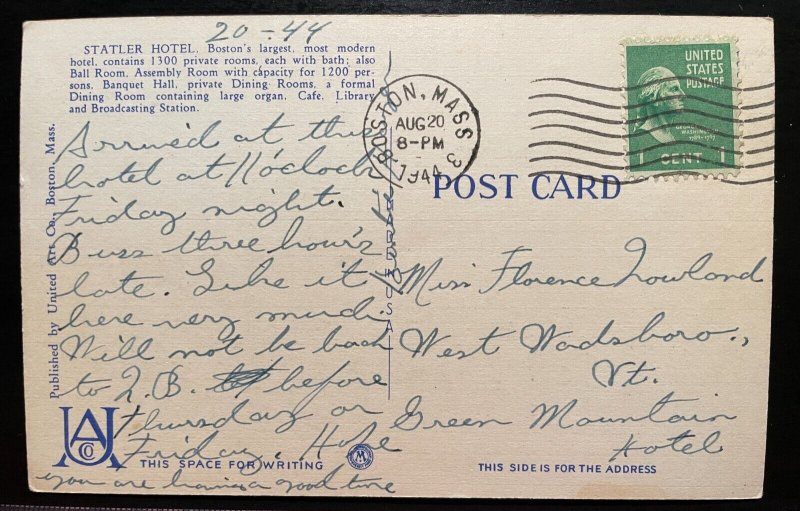 20-44
STATLER HOTEL. Boston's largest, most modern
hotel, contains 1300 private rooms, each with bath; also
Ball Room, Assembly Room with capacity for 1200 per-
sons, Banquet Hall, private Dining Rooms, a formal
Dining Room containing large organ, Cafe, Library
and Broadcasting Station.
Arrived at the
hotel at 11 o'clock
Friday night.
Buss three hour's
late. Like it
here very much.
Will not be back
to before
Thursday or
Friday. Hope
you are having a good time
Published by United Art Co., Boston, Mass.
UA
CO
THIS SPACE FOR WRITING
BOSTON, MASS
AUG 20
8-PM
1944
3
UNITED
STATES
POSTAGE
GEORGE
WASHINGTON
1789-1797
1 CENT 1
POST CARD
Miss Florence
West Wadsboro.,
Vt.
Green Mountain
Hotel
THIS SIDE IS FOR THE ADDRESS